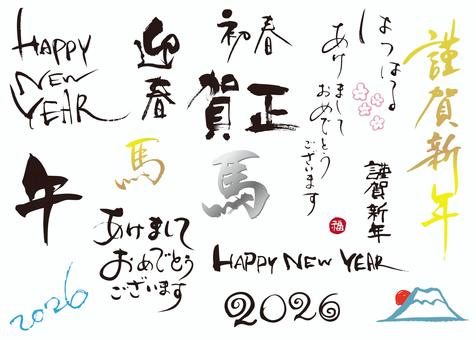 HAPPY
NEW
YEAR
迎春
初春
賀正
はつはる
あけまして
おめでとう
ございます
謹賀新年
馬
馬
午
謹賀新年
福
あけまして
おめでとう
ございます
HAPPY NEW YEAR
2026
2026